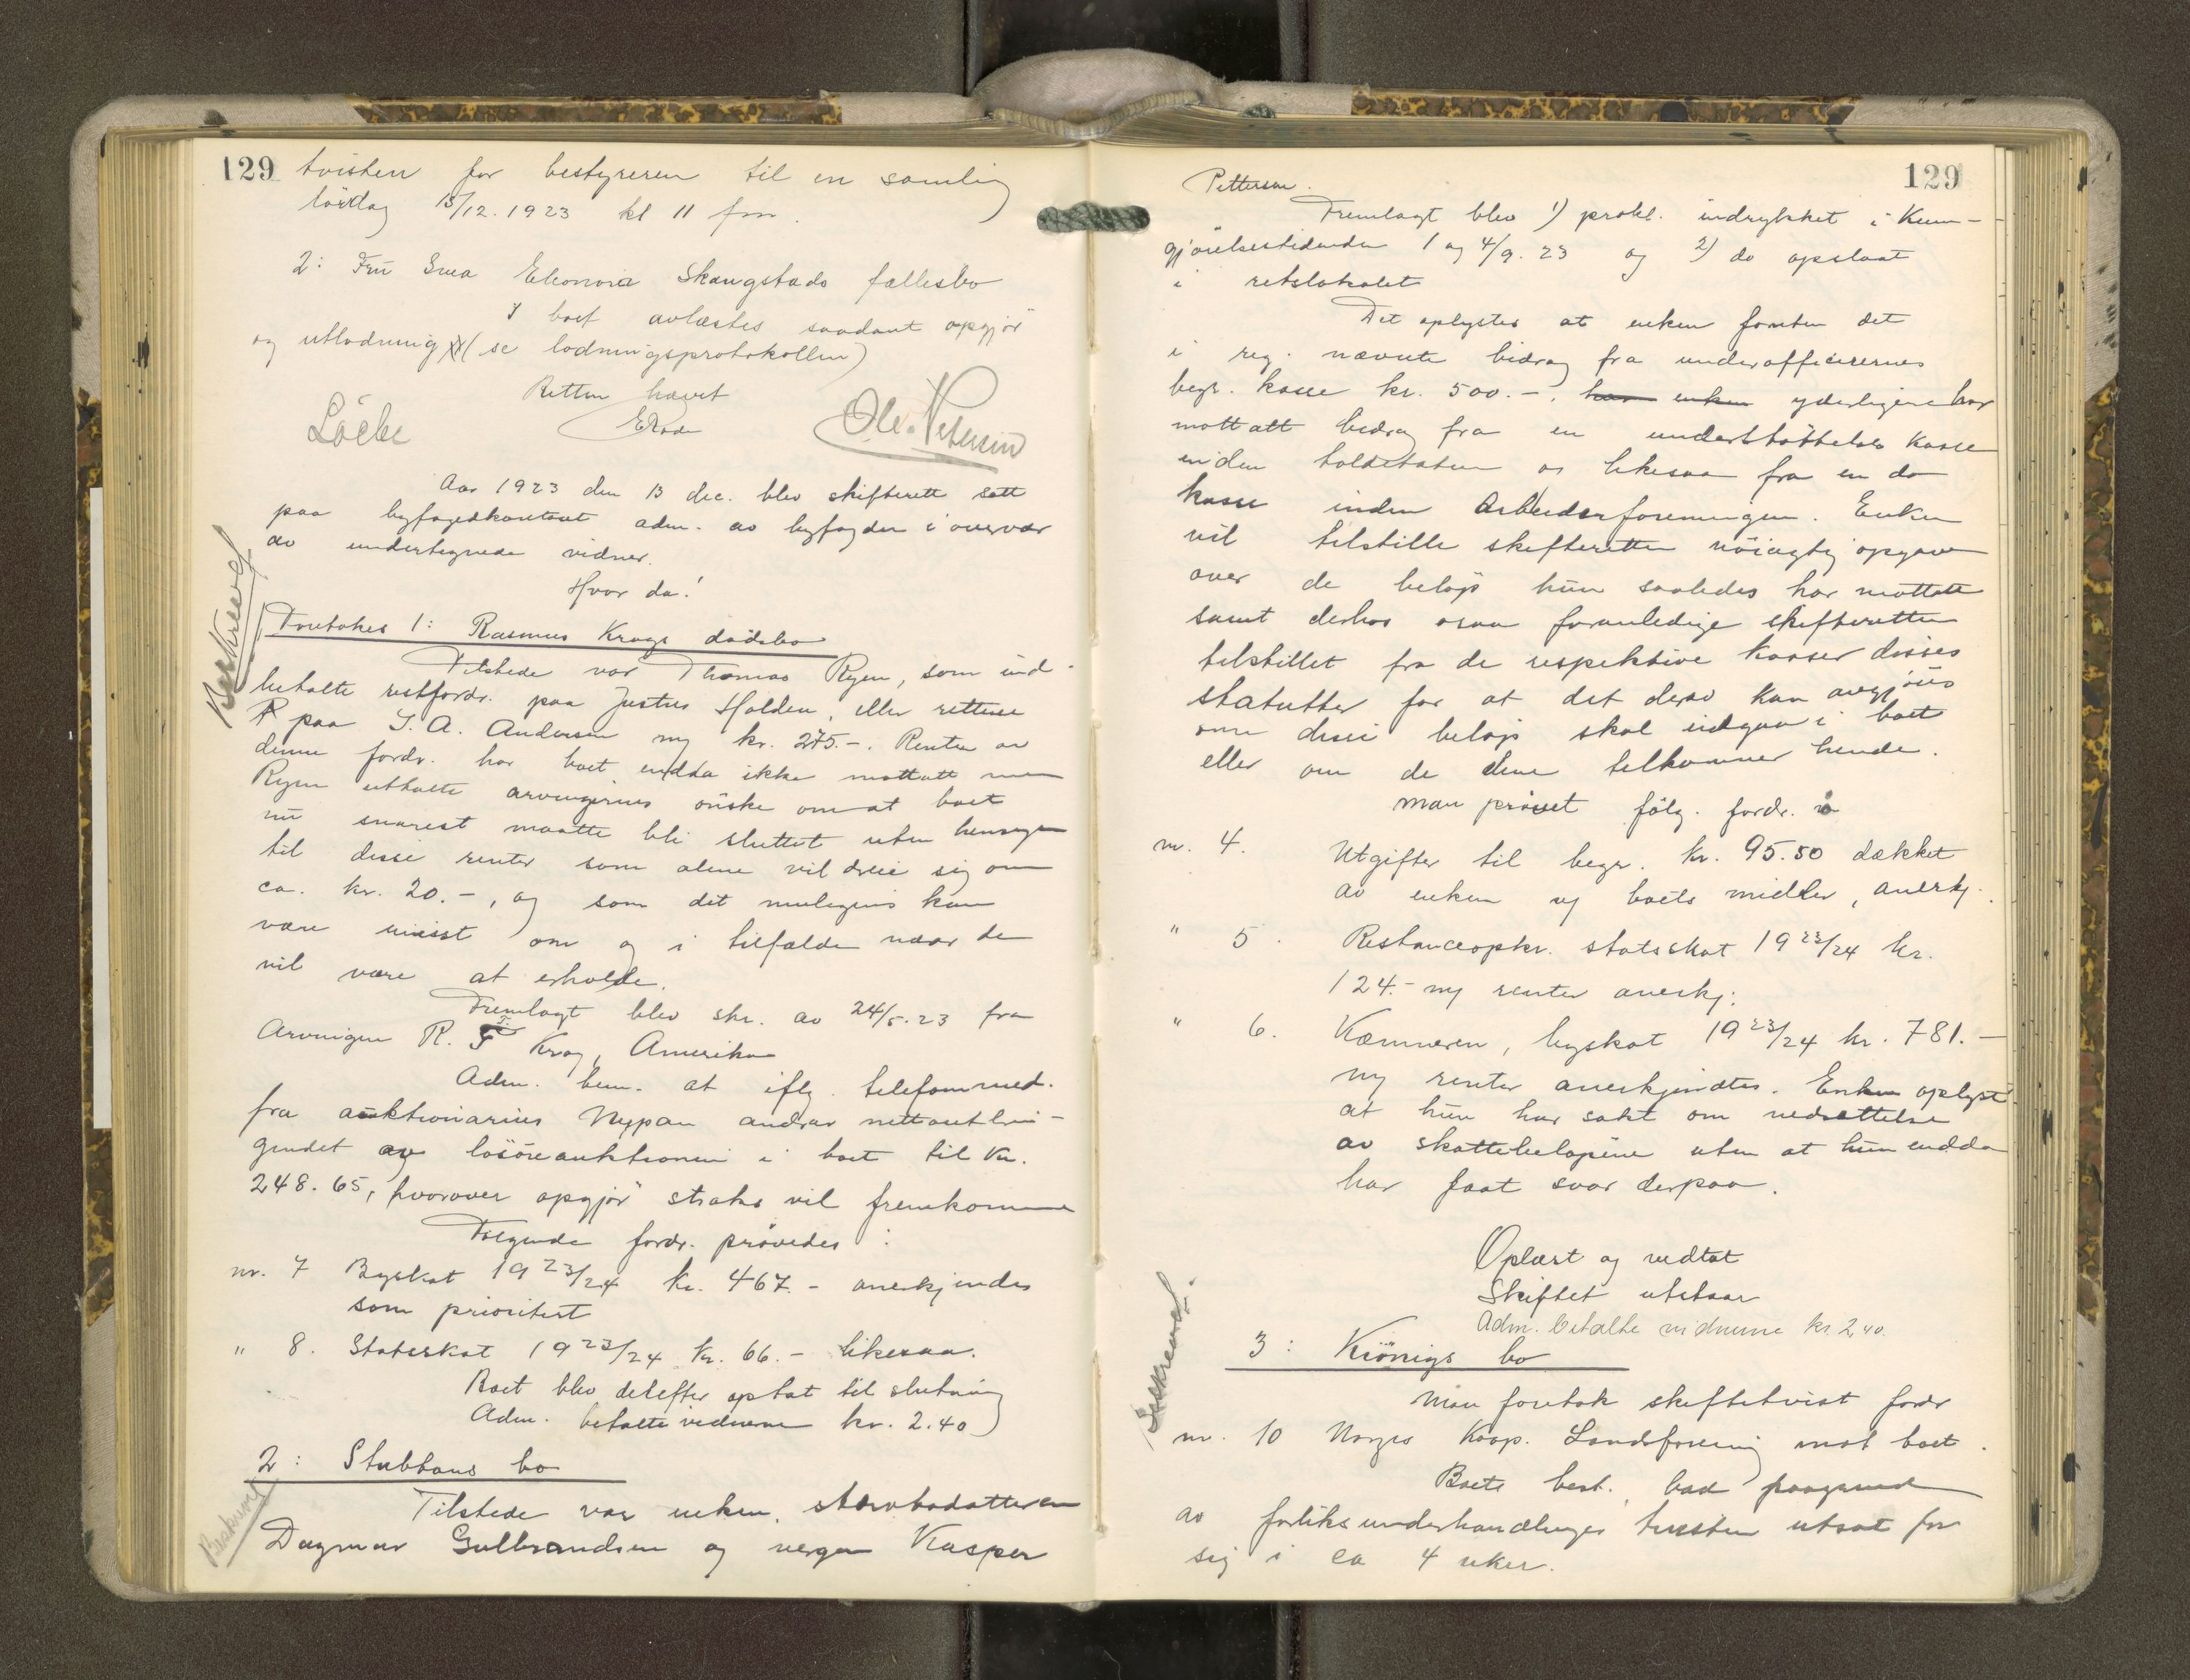 129 tvisten for bestyreren til en samling
lördag 15/12. 1923 kl 11 fm.
2: Frü Eleonora Skaugstads fællesbo
I boet avlæstes saadant opgjör
og utlodning (se lodningsprotokollen)
Retten hævet
Löche ERode Ole Petersen
Aar 1923 den 13 dec. blev skifterett satt
paa byfogedkontoret adm. av byfogden i overvær
av undertegnede vidner.
Hvor da!
Beskrevet
Foretokes 1: Rasmus Krogs dödsbo
Tilstede var Thomas Ryen, som ind-
betalte restfordr. paa Justus Holden, eller rettere
paa J. A. Andersen kr. 275.-. Renter av
denne fordr. har boet endda ikke mottatt men
Ryen uttalte arvingernes önske om at boet
nü snarest maatte bli sluttet uten hensyn
til disse renter som alene vil dreie sig om
ca. kr. 20.-, og som det muligens kan
være uvisst om og i tilfælde naar de
vil være at erholde.
Fremlagt blev skr. av 24/5.23 fra
Arvingen R. T. Krog, Amerika
Adm. bem. at iflg. telefonmed.
fra auktionarius Nypan andrar nettoutbrin-
gendet av lösöreauktionen i boet til kr.
248.65, hvorover opgjör straks vil fremkomme
Følgende fordr. prövedes :
nr. 7 Byskat 1923/24 kr. 467.- anerkjendes
som prioritert
" 8. Statsskat 1923/24 kr. 66.- likesaa.
Boet blev derefter optat til slutning
Adm. betalte vidnerne kr. 2.40
2: Stubbans bo
Beskrevet
Tilstede var enken, stervbodatteren
Dagmar Gulbrandsen og vergen Kasper
129
Pettersen.
Fremlagt blev 1) prokl. indrykket i Kun-
gjörelsestidende 1 og 4/9. 23 og 2) do opslaat
i retslokalet
Det oplystes at enken foruten det
i reg. nævnte bidrag fra underofficerernes
begr. kasse kr. 500.-. har enken yderligere har
mottatt bidrag fra en understöttelses kasse
inden toldetaten og likesaa fra en do
kasse inden Arbeiderforeningen. Enken
vil tilstille skifteretten nöiagtig opgave
over de belöp hün saaledes har mottatt
samt derhos osaa foranledige skifteretten
tilstillet fra de respektive kasser disses
statutter for at det derav kan avgjöres
om disse belöp skal indgaa i boet
eller om de alene tilkommer hende.
Man prövet fölg. fordr.
nr. 4. Utgifter til begr. kr. 95.50 dækket
av enken av boets midler, anerkj.
" 5. Restanceopkr. statsskat 1923/24 kr.
124.- renter anerkj.
" 6. Kæmneren, byskat 1923/24 kr. 781.-
renter anerkjendtes. Enken oplyste
at hün har søkt om nedsættelse
av skattebelöpene uten at hün endda
har faat svar derpaa.
Oplæst og vedtat
Skiftet utstaar
Adm. betalte vidnerne kr. 2,40.
Beskrevet.
3: Krönigs bo
Man foretok skiftetvist fordr
nr. 10 Norges Koop. Landsforening mot boet.
Boets best. bad paagrund
av forliksunderhandlinger tvisten utsat for
sig i ca 4 uker.